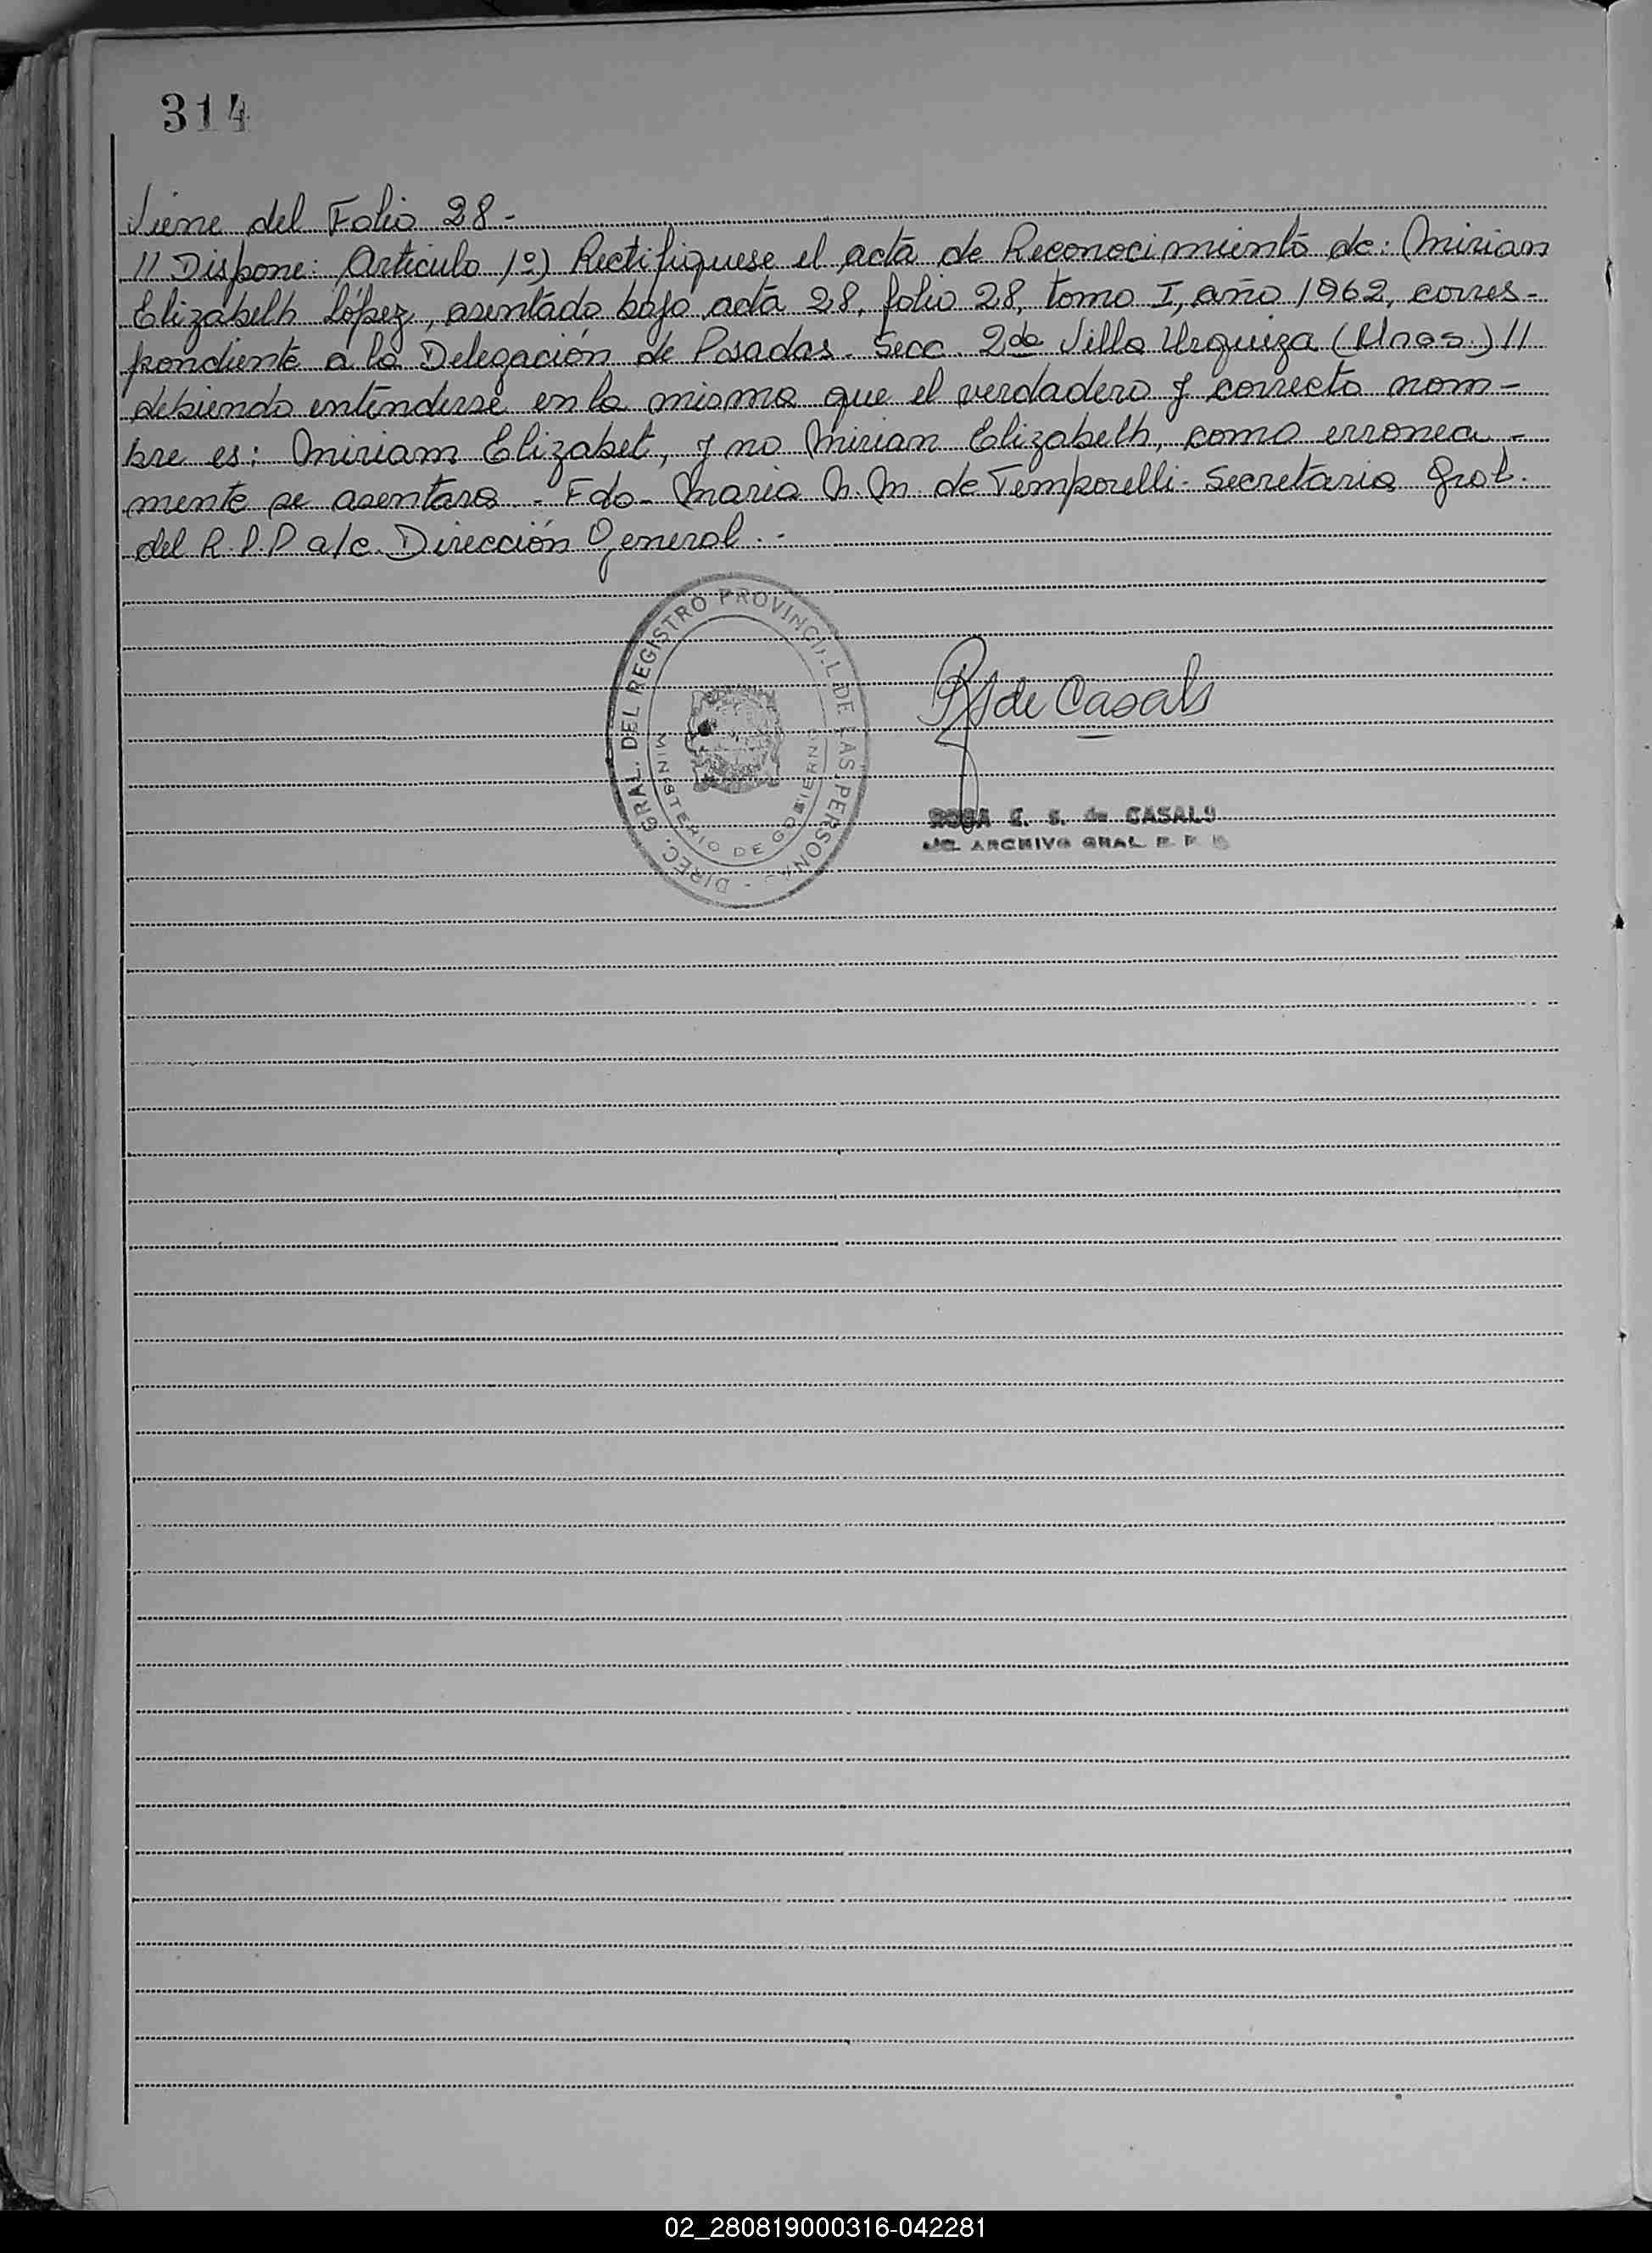 314
Viene del Folio 28-
// Dispone: Artículo 1º) Rectifiquese el acta de Reconocimiento de: Mirian
Elizabelh López, asentado bajo acta 28, folio 28, tomo I, año 1962, corres-
pondiente a la Delegación de Posadas. Secc. 2da Villa Urquiza (Mnes.) //
debiendo entenderse en la misma que el verdadero y correcto nom-
bre es: Miriam Elizabet, y no Mirian Elizabelh, como erronea-
mente se asentara.- Fdo- Maria N. M. de Temporelli- Secretaria Gral.
del R.P.P a/c. Dirección General.-
DIREC. GRAL. DEL REGISTRO PROVINCIAL DE LAS PERSONAS
MINISTERIO DE GOBIERNO
de Casals
ROSA E. S. de CASALS
ARCHIVO GRAL. R. P. P.
02_280819000316-042281